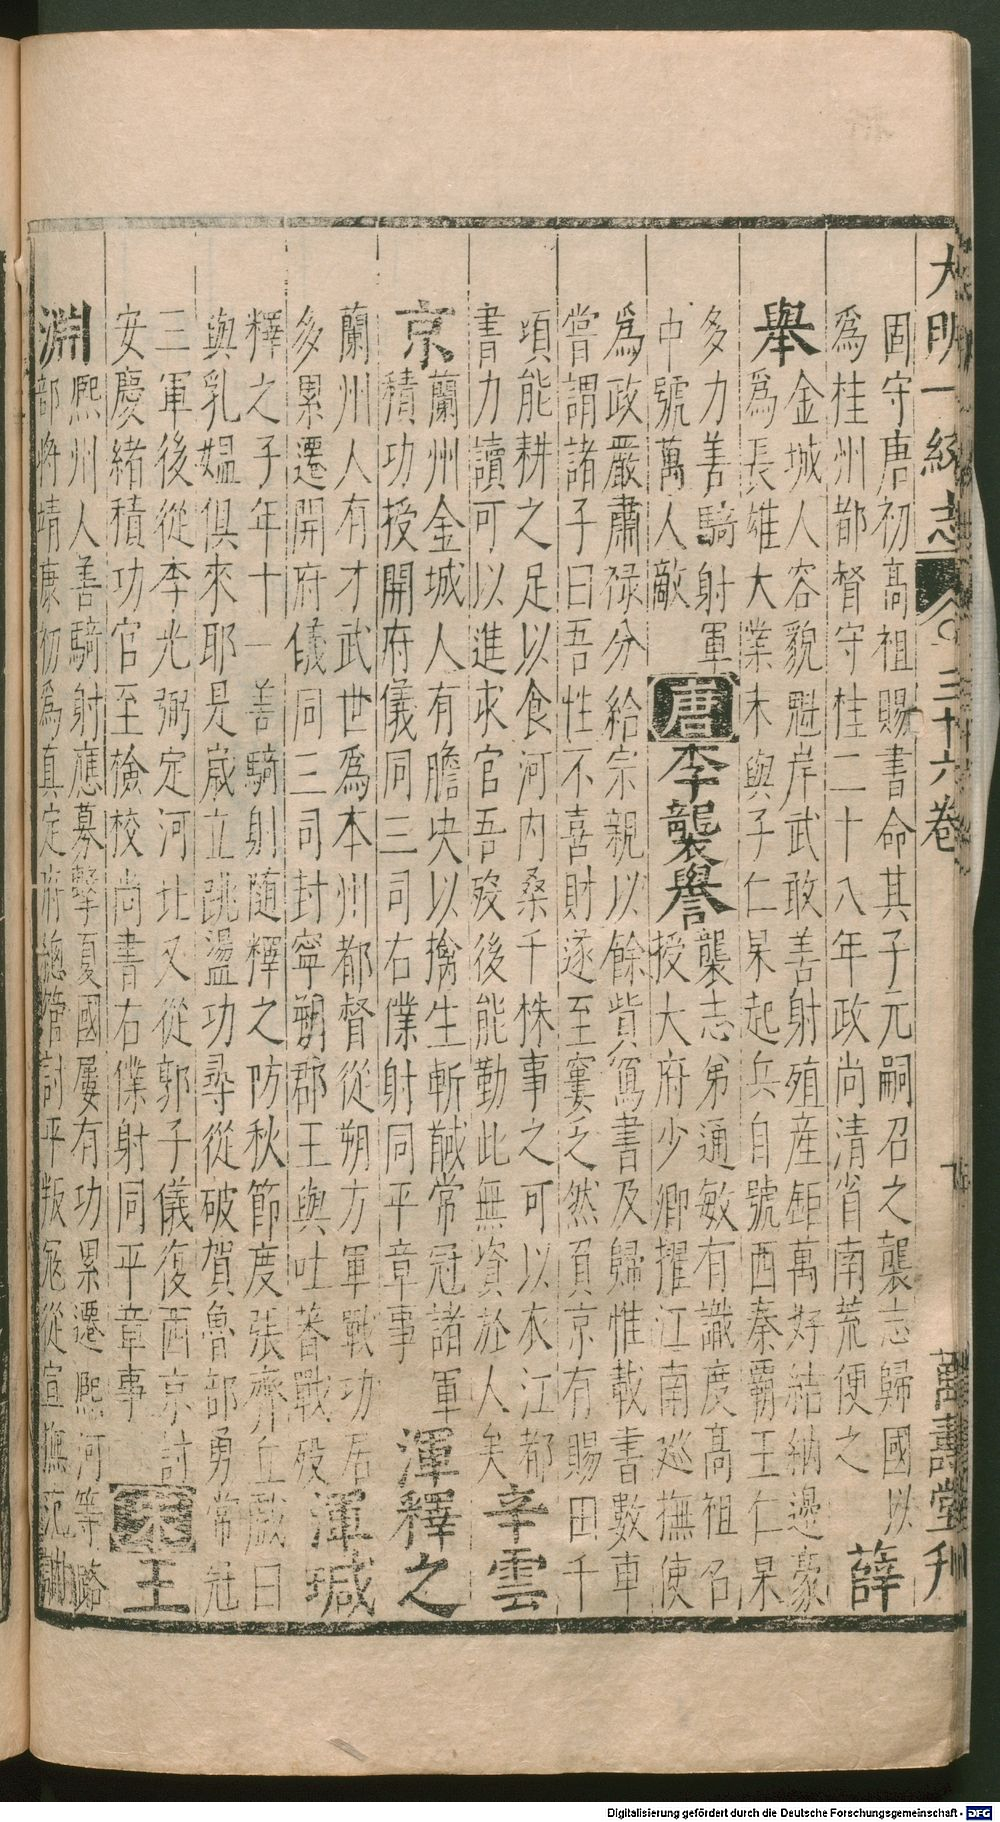 大明一統志 三十六卷 萬壽堂刋
固守唐初高祖賜書命其子元嗣召之襲志歸國以
爲桂州都督守桂二十八年政尚清省南荒便之 薛
舉 金城人容貌魁岸武敢善射殖産鉅萬好結納邊豪
爲長雄大業末與子仁杲起兵自號西秦霸王仁杲
多力善騎射軍
中號萬人敵
唐 李襲譽
襲志弟通敏有識度高祖召
授大府少卿擢江南廵撫使
爲政嚴肅禄分給宗親以餘貲寫書及歸惟載書數車
嘗謂諸子曰吾性不喜財遂至窶乏然負京有賜田千
頃能耕之足以食河内桑千株事之可以衣江都
書力讀可以進求官吾歿後能勤此無資於人矣
辛雲
京 蘭州金城人有膽决以擒生斬馘常冠諸軍
積功授開府儀同三司右僕射同平章事
渾釋之
蘭州人有才武世爲本州都督從朔方軍戰功居
多累遷開府儀同三司封寧朔郡王與吐蕃戰歿
渾瑊
釋之子年十一善騎射随釋之防秋節度張齊丘戲曰
與乳媪俱來耶是歲立跳盪功尋從破賀魯部勇常冠
三軍後從李光弼定河北又從郭子儀復西京討
安慶緒積功官至檢校尚書右僕射同平章事
宋 王
淵 熙州人善騎射應募擊夏國屢有功累遷熙河等路
部將靖康初爲真定府總管討平叛冦從宣撫范訥
Digitalisierung gefördert durch die Deutsche Forschungsgemeinschaft - DFG